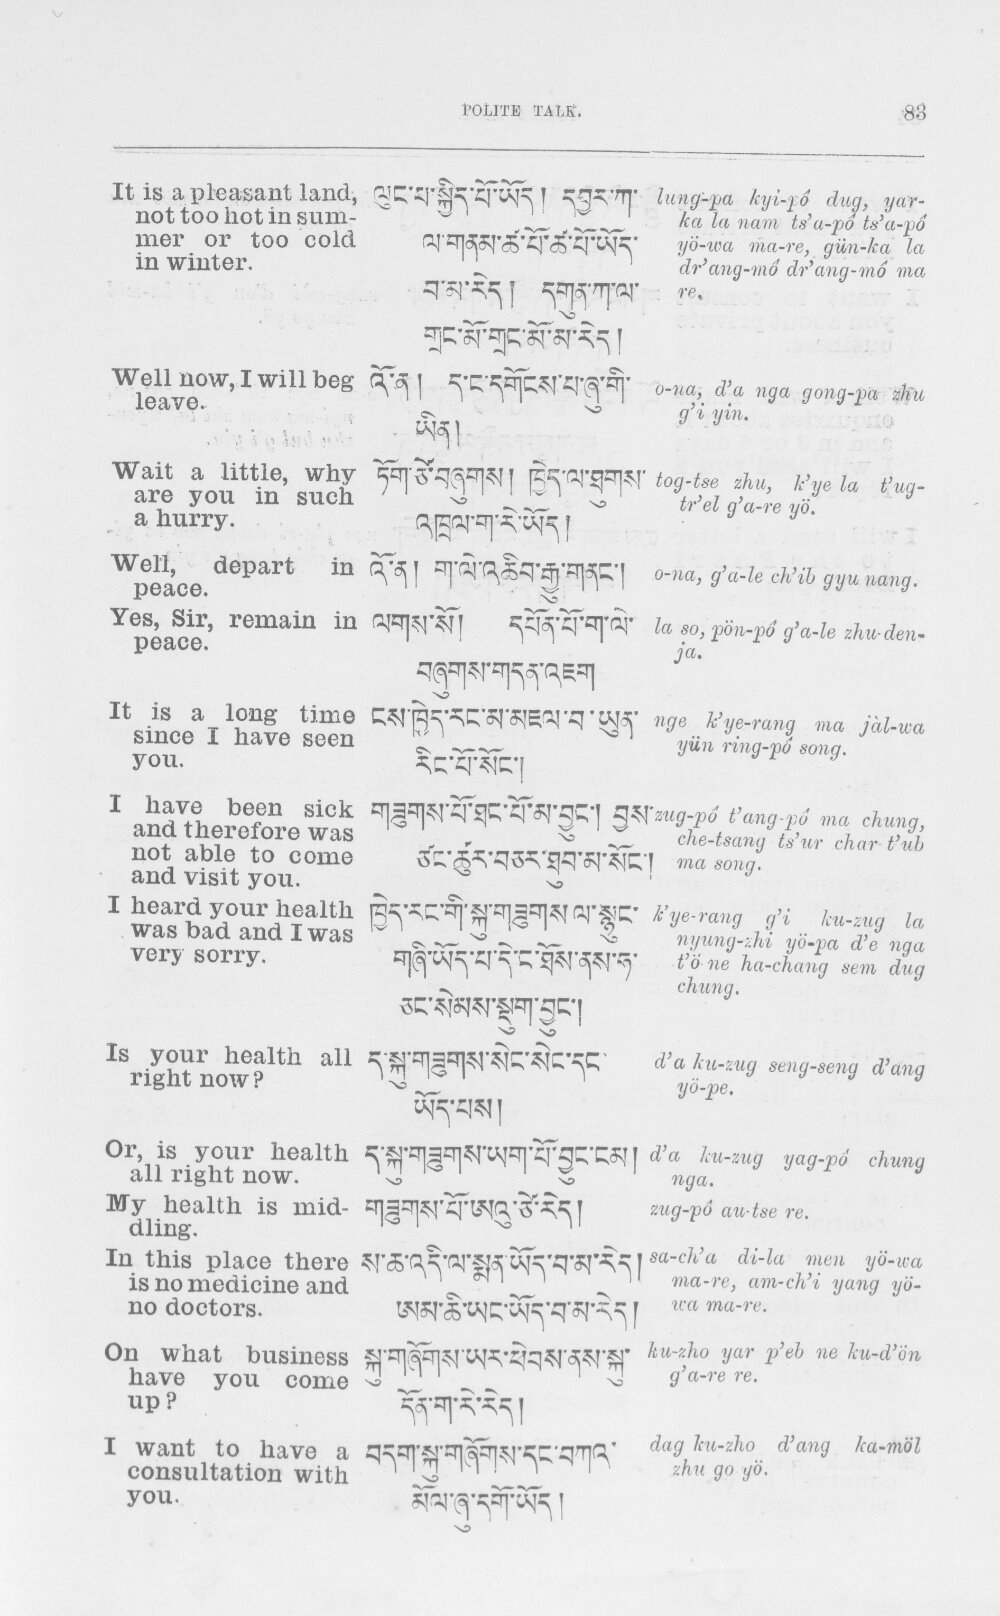 POLITE TALK. 83
It is a pleasant land,
not too hot in sum-
mer or too cold
in winter.
ལུང་པ་སྐྱིད་པོ་ཡོད། དབྱར་ཀ་
ལ་གནམ་ཚ་པོ་ཚ་པོ་ཡོད་
བ་མ་རེད། དགུན་ཀ་ལ་
གྲང་མོ་གྲང་མོ་མ་རེད།
lung-pa kyi-pó dug, yar-
ka la nam ts'a-pó ts'a-pó
yö-wa ma-re, gün-ka la
dr'ang-mó dr'ang-mó ma
re.
Well now, I will beg
leave.
འོ་ན། ད་ང་དགོངས་པ་ཞུ་གི་
ཡིན།
o-na, d'a nga gong-pa zhu
g'i yin.
Wait a little, why
are you in such
a hurry.
ཏོག་ཙེ་བཞུགས། ཁྱེད་ལ་ཐུགས་
འཁྲལ་ག་རེ་ཡོད།
tog-tse zhu, k'ye la t'ug-
tr'el g'a-re yö.
Well, depart in
peace.
འོ་ན། ག་ལེ་འཆིབ་རྒྱུ་གནང་།
o-na, g'a-le ch'ib gyu nang.
Yes, Sir, remain in
peace.
ལགས་སོ། དཔོན་པོ་ག་ལེ་
བཞུགས་གདན་འཇག
la so, pön-pó g'a-le zhu-den-
ja.
It is a long time
since I have seen
you.
ངས་ཁྱེད་རང་མ་མཇལ་བ་ཡུན་
རིང་པོ་སོང་།
nge k'ye-rang ma jàl-wa
yün ring-pó song.
I have been sick
and therefore was
not able to come
and visit you.
གཟུགས་པོ་ཐང་པོ་མ་བྱུང་། བྱས་
ཙང་ཚུར་བཅར་ཐུབ་མ་སོང་།
zug-pó t'ang-pó ma chung,
che-tsang ts'ur char t'ub
ma song.
I heard your health
was bad and I was
very sorry.
ཁྱེད་རང་གི་སྐུ་གཟུགས་ལ་སྙུང་
གཞི་ཡོད་པ་དེ་ང་ཐོས་ནས་ཧ་
ཅང་སེམས་སྡུག་བྱུང་།
k'ye-rang g'i ku-zug la
nyung-zhi yö-pa d'e nga
t'ö ne ha-chang sem dug
chung.
Is your health all
right now?
ད་སྐུ་གཟུགས་སེང་སེང་དང་
ཡོད་པས།
d'a ku-zug seng-seng d'ang
yö-pe.
Or, is your health
all right now.
ད་སྐུ་གཟུགས་ཡག་པོ་བྱུང་ངམ།
d'a ku-zug yag-pó chung
nga.
My health is mid-
dling.
གཟུགས་པོ་ཨའུ་ཙེ་རེད།
zug-pó au-tse re.
In this place there
is no medicine and
no doctors.
ས་ཆ་འདི་ལ་སྨན་ཡོད་བ་མ་རེད།
ཨམ་ཆི་ཡང་ཡོད་བ་མ་རེད།
sa-ch'a di-la men yö-wa
ma-re, am-ch'i yang yö-
wa ma-re.
On what business
have you come
up?
སྐུ་གཞོགས་ཡར་ཕེབས་ནས་སྐུ་
དོན་ག་རེ་རེད།
ku-zho yar p'eb ne ku-d'ön
g'a-re re.
I want to have a
consultation with
you.
བདག་སྐུ་གཞོགས་དང་བཀའ་
མོལ་ཞུ་དགོ་ཡོད།
dag ku-zho d'ang ka-möl
zhu go yö.